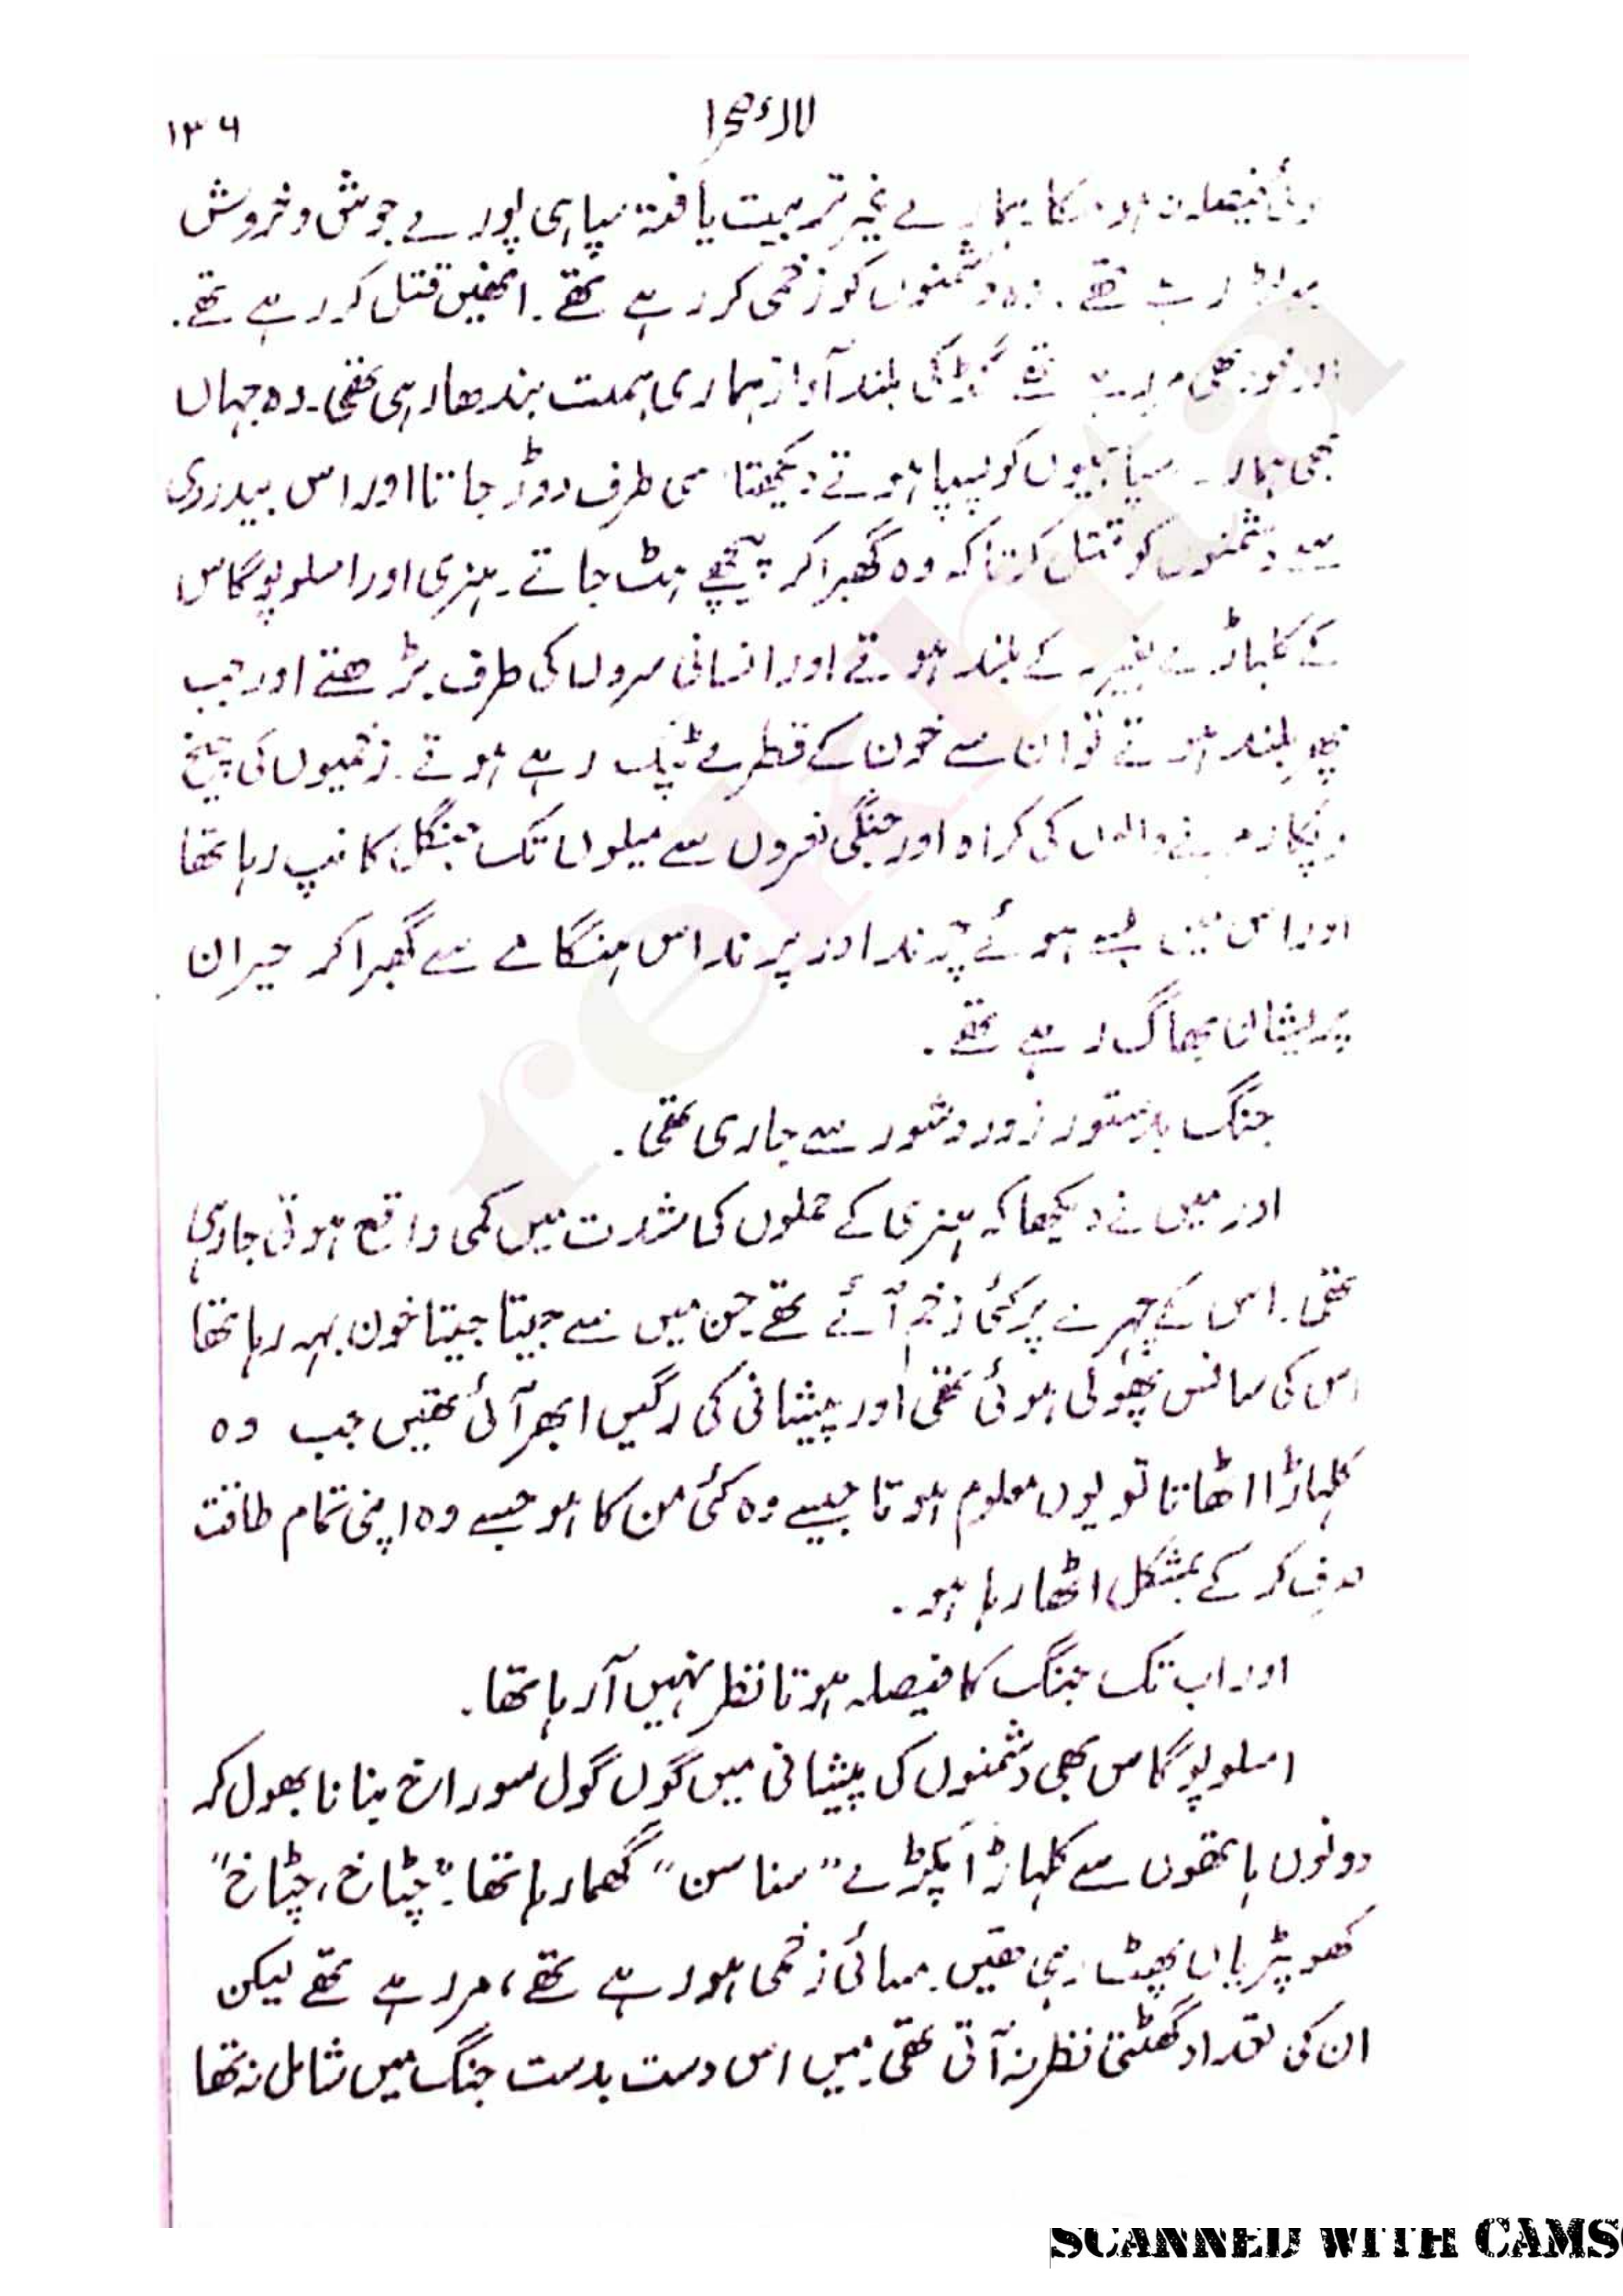 لالۂ صحرا ۱۳۶
فیصلہ نہ ہو سکا۔ ہمارے غیر تربیت یافتہ سپاہی پورے جوش و خروش
رہے تھے۔ وہ دشمنوں کو زخمی کر رہے تھے۔ انھیں قتل کر رہے تھے۔
اور خود بھی مر رہے تھے گڈ کی بلند آواز ہماری ہمت بندھا رہی تھی۔ وہ جہاں
بھی ہمارے سپاہیوں کو پسپا ہوتے دیکھتا اسی طرف دوڑ جاتا اور اس بیدردی
سے دشمنوں کو قتل کرتا کہ وہ گھبرا کر پیچھے ہٹ جاتے۔ ہنری اور املوپوگاس
کے کلہاڑے بغیر کے بلند ہوتے اور انسانی سروں کی طرف بڑھتے اور جب
پھر بلند ہوتے تو ان سے خون کے قطرے ٹپک رہے ہوتے۔ زخمیوں کی چیخ
و پکار مرنے والوں کی کراہ اور جنگی نعروں سے میلوں تک جنگل کانپ رہا تھا
اور اس میں بسے ہوئے چرند اور پرند اس ہنگامے سے گھبرا کر حیران
پریشان بھاگ رہے تھے۔
جنگ بدستور زور و شور سے جاری تھی۔
اور میں نے دیکھا کہ ہنری کے حملوں کی شدت میں کمی واقع ہوتی جا رہی
تھی۔ اس کے چہرے پر کئی زخم آئے تھے جن میں سے جیتا جیتا خون بہہ رہا تھا
اس کی سانس پھولی ہوئی تھی اور پیشانی کی رگیں ابھر آئی تھیں جب وہ
کلہاڑا اٹھاتا تو یوں معلوم ہوتا جیسے وہ کئی من کا ہو جسے وہ اپنی تمام طاقت
صرف کر کے بمشکل اٹھا رہا ہو۔
اور اب تک جنگ کا فیصلہ ہوتا نظر نہیں آ رہا تھا۔
املوپوگاس بھی دشمنوں کی پیشانی میں گول گول سوراخ بنانا بھول کر
دونوں ہاتھوں سے کلہاڑا پکڑے "سنا سن" گھما رہا تھا۔ "چٹاخ، چٹاخ"
کھوپڑیاں پھٹ رہی تھیں۔ مسائی زخمی ہو رہے تھے، مر رہے تھے لیکن
ان کی تعداد گھٹتی نظر نہ آتی تھی۔ میں اس دست بدست جنگ میں شامل نہ تھا
SCANNED WITH CAMS